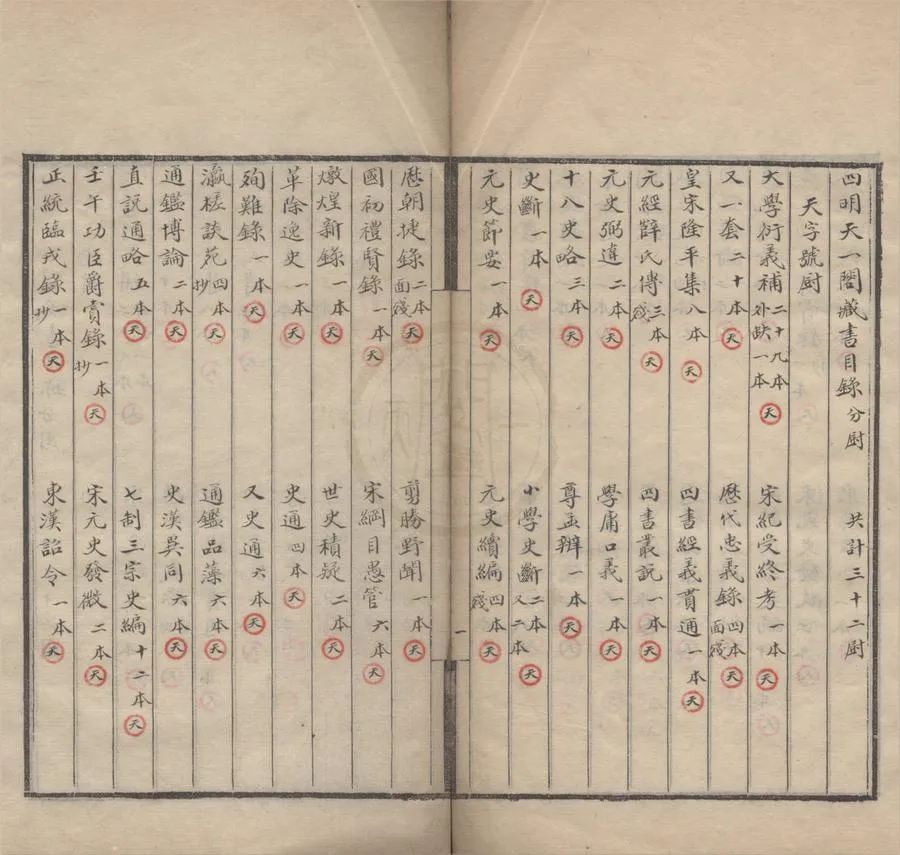 四明天一閣藏書目錄 分厨 共計三十二厨
天字號厨
大學衍義補 二十九本 外缺一本 天 宋紀受終考 一本 天
又一套 二十本 天 歷代忠義錄 四本 面殘 天
皇宋隆平集 八本 天 四書經義貫通 一本 天
元經薛氏傳 三本 殘 天 四書叢說 一本 天
元史弼違 二本 天 學庸口義 一本 天
十八史略 三本 天 尊孟辨 一本 天
史斷 一本 天 小學史斷 二本 又二本 天
元史節要 一本 天 元史續編 四本 殘 天
一
歷朝捷錄 二本 面殘 天 剪勝野聞 一本 天
國初禮賢錄 一本 天 宋綱目愚管 六本 天
燉煌新錄 一本 天 世史積疑 二本 天
革除逸史 一本 天 史通 四本 天
殉難錄 一本 天 又史通 六本 天
瀛槎談苑 四本 抄 天 通鑑品藻 六本 天
通鑑博論 二本 天 史漢異同 六本 天
直說通略 五本 天 七制三宗史編 十二本 天
壬午功臣爵賞錄 一本 抄 天 宋元史發微 二本 天
正統臨戎錄 一本 抄 天 東漢詔令 一本 天